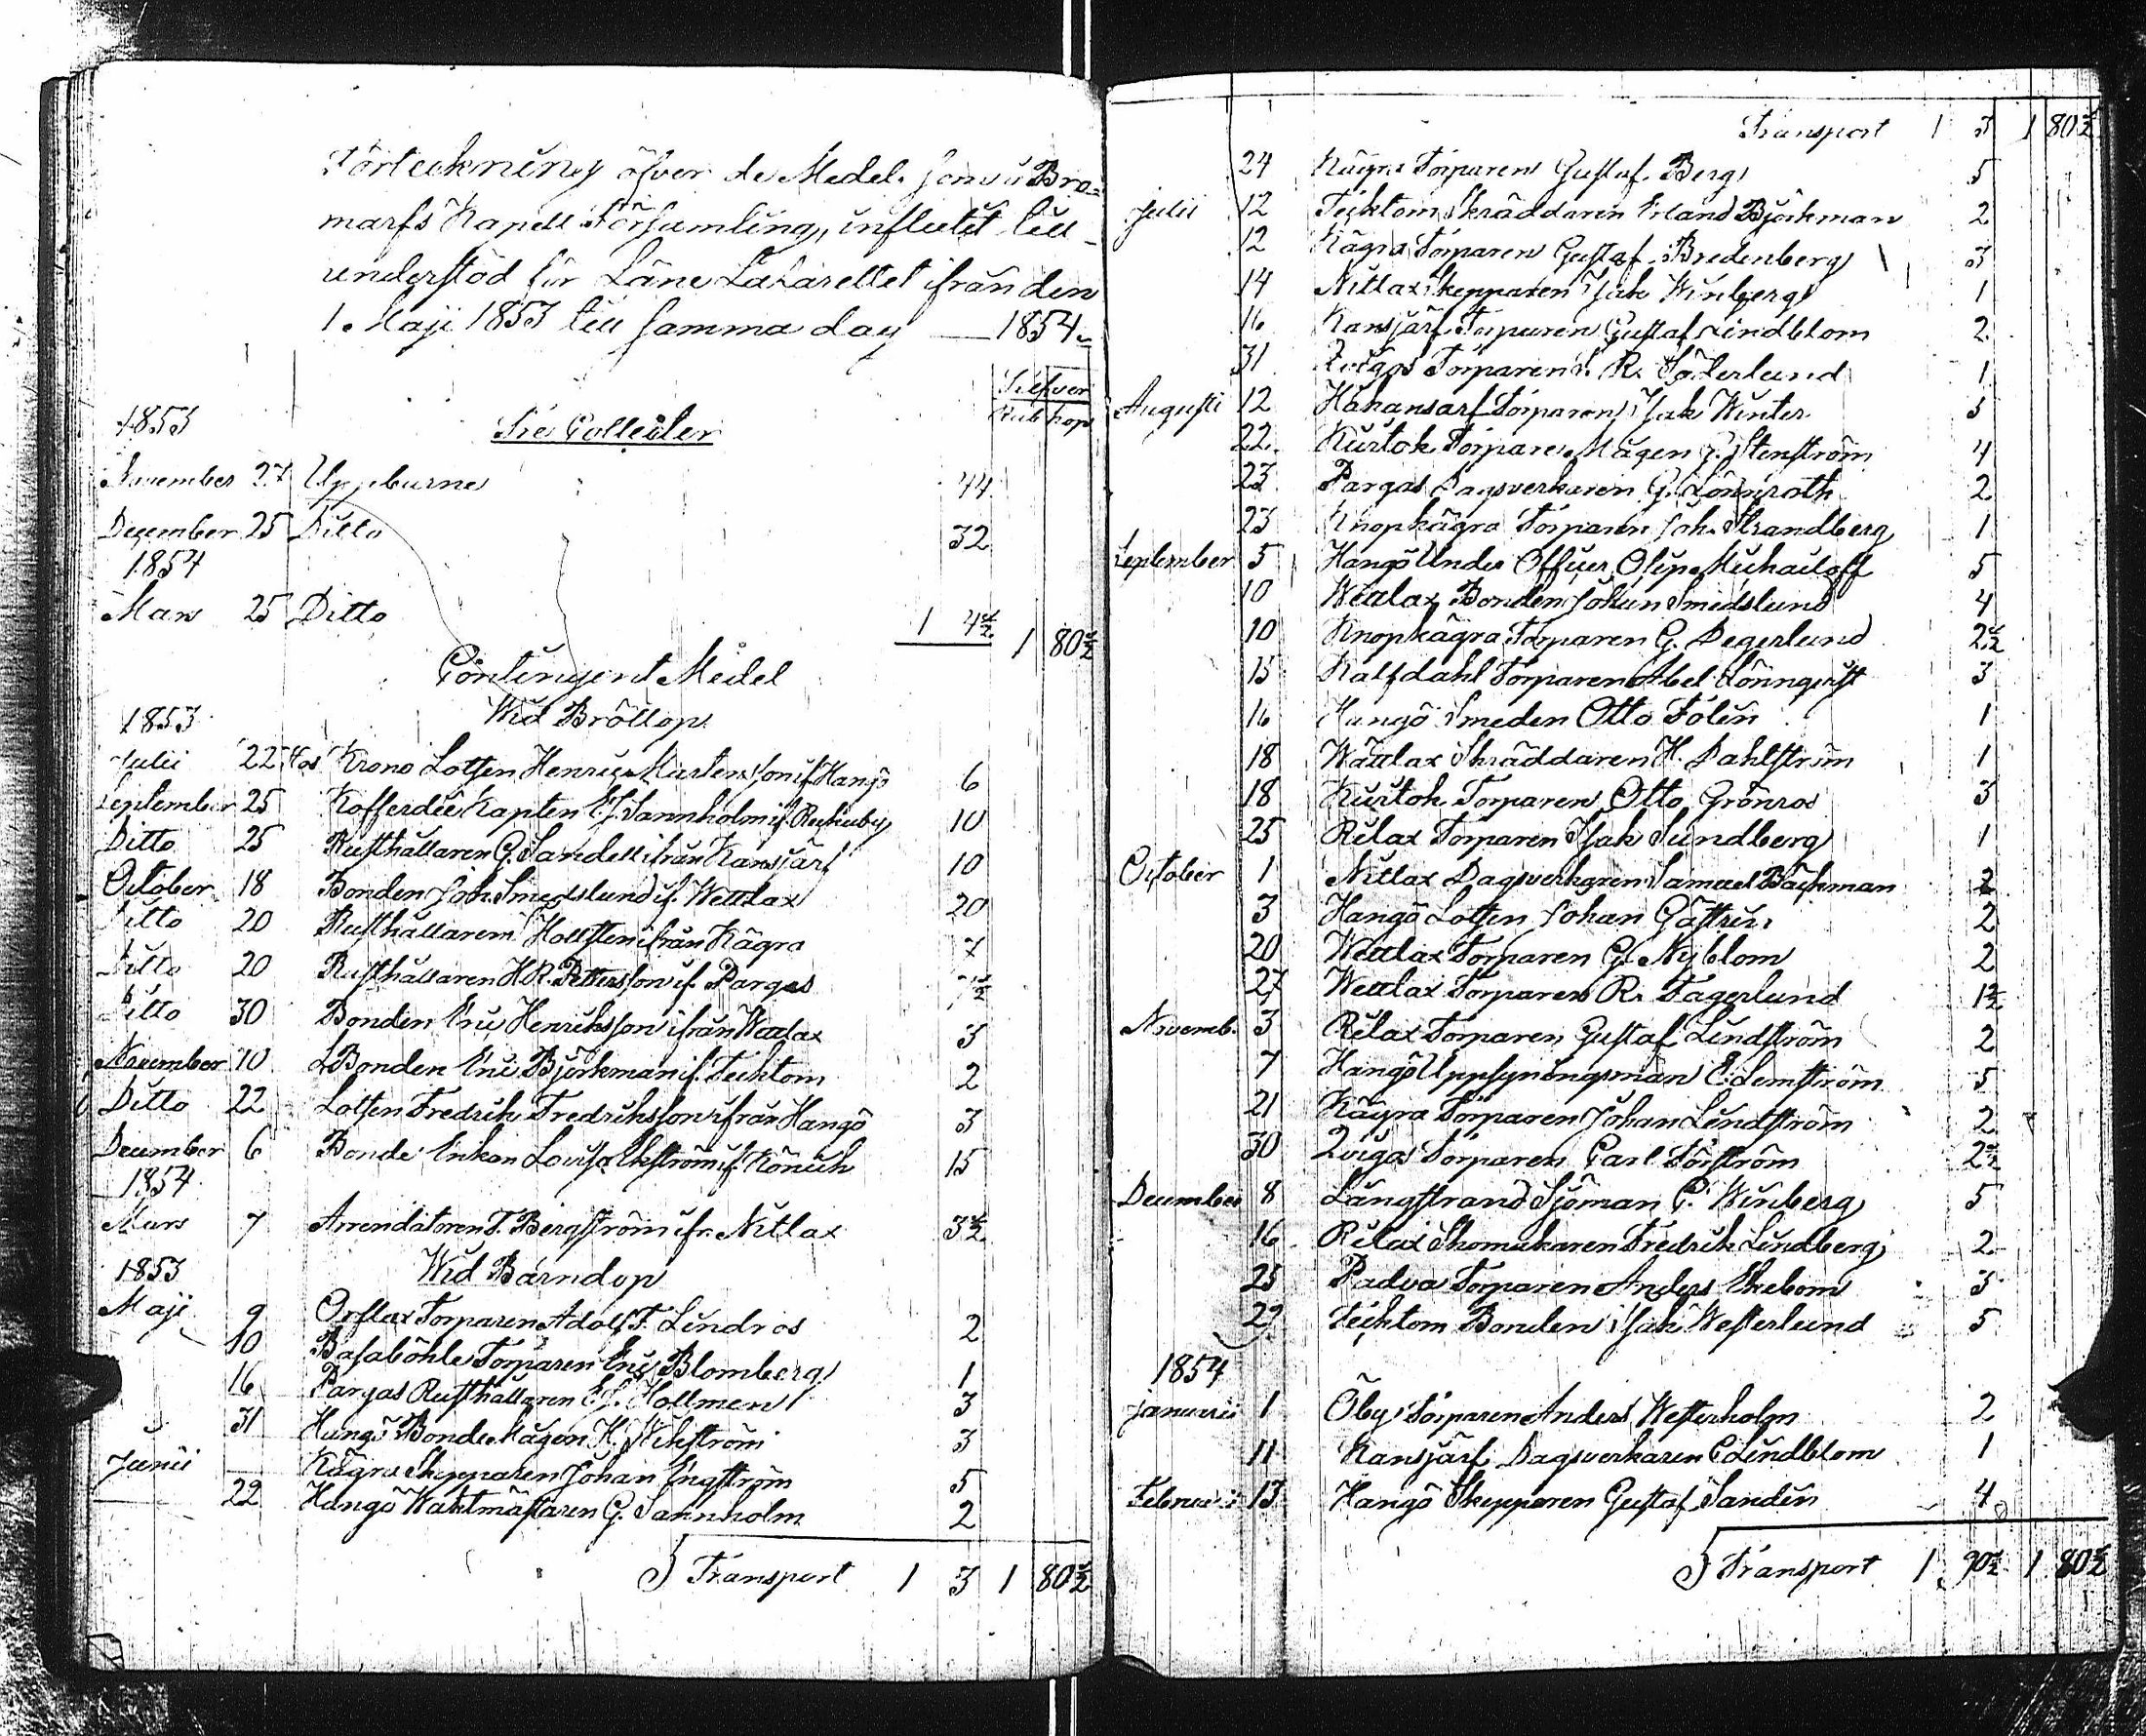 Förteckning öfver de Medel som i Bro=
marfs Kapell Församling, influtit till
understöd för Läne Lazarettet ifrån den
1. Maji 1853 till samma dag — 1854.
Silfver
Rub kop
1853 Tre Collecter
November 27 Uppburne 44
December 25 Ditto 32
1854
Mars 25 Ditto 1 4½ 1 80½
Contingent Medel
Wid Bröllop
1853
Julii 22 Hos Krono Lotsen Henric Mårtensson if. Hangö 6
September 25 Kofferdie Kapten E.J. Sannholm if. 10
Ditto 25 Rusthållaren G. Sandell ifrån Kansjärf 10
October 18 Bonden Joh. Smedslund if. Wettlax 20
Ditto 20 Rusthållaren Hollsten ifrån Kägra 7
Ditto 20 Rusthållaren H.R. Pettersson if. Pargas 7½
Ditto 30 Bonden Eric Henriksson ifrån Wättlax 3
November 10 Bonden Eric Björkman if. Techtom 2
Ditto 22 Lotsen Fredrik Fredriksson ifrån Hangö 3
December 6 Bonde Enkan Lovisa Ekström if. 15
1854
Mars 7 Arrendatoren F. Bergström ifr. Nitlax 3½
1853 Wid Barndop
Maji 9 Orslax Torparen Adolf F. Lindros 2
10 Basaböhle Torparen Eric Blomberg 1
16 Pargas Rusthållaren E.J. Hollmen 3
31 Hangö Bonde Mågen H. Wikström 3
Junii — Kägra Skepparen Johan Engström 5
22 Hangö Waktmästaren G. Sannholm 2
Transport 1 3 1 80½
Transport 1 3 1 80½
24 Kägra Torparen Gustaf Berg 5
Julii 12 Techtom Skräddaren Erland Björkman 2
12 Kägra Torparen Gustaf Bredenberg 3
14 Nitlax Skepparen Isak Winberg 1
16 Kansjärf Torparen Gustaf Lindblom 2
31 Torparen R. Söderlund 1
Augusti 12 Håkansarf Torparen Isak Winter 3
22 Kurtok Torpare Mågen G. Stenström 4
23 Pargas Dagsverkaren G. Lönnroth 2
23 Knopkägra Torparen Joh. Strandberg 1
September 5 Hangö Under Officer Osip Michailoff 5
10 Wättlax Bonden Johan Smedslund 4
10 Knopkägra Torparen G. Degerlund 2½
15 Kalfdahl Torparen Abel Lönnqvist 3
16 Hangö Smeden Otto Tolin 1
18 Wättlax Skräddaren H. Dahlström 1
18 Kurtok Torparen Otto Grönros 3
25 Rilax Torparen Isak Sundberg 1
October 1 Nitlax Dagsverkaren Samuel Bäckman 2
3 Hangö Lotsen Johan Gästrin 2
20 Wettlax Torparen G. Nyblom 2
27 Wettlax Torparen R. Fagerlund 1½
Novemb. 3 Rilax Torparen Gustaf Lindström 2
7 Hangö Uppsyningsman E. Lemström 5
21 Kägra Torparen Johan Lindström 2
30 Torparen Carl Törström 2½
December 8 Långstrand Sjöman G. Winberg 5
16 Rilax Skomakaren Fredrik Lindberg 2
25 Padva Torparen Anders Ekebom 3
27 Techtom Bonden Isak Westerlund 5
1854
Januarii 1 Öby Torparen Anders Westerholm 2
11 Kansjärf Dagsverkaren C Lindblom 1
Februarii 13 Hangö Skepparen Gustaf Sandin 4
Transport 1 90½ 1 80½